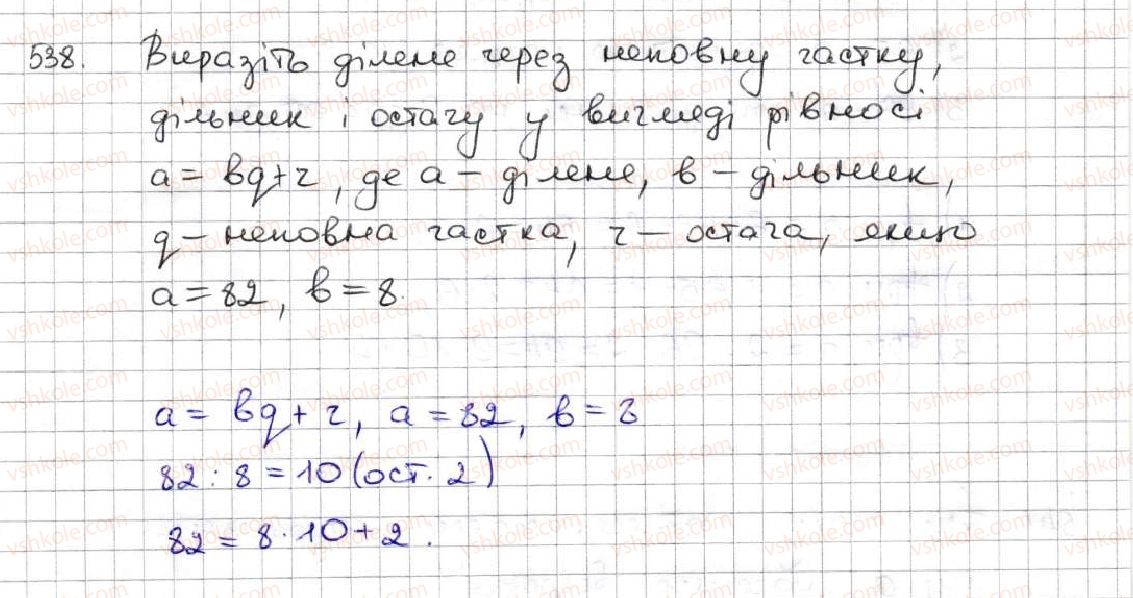 538. Виразіть ділене через неповну частку,
дільник і остачу у вигляді рівності
a = bq + r, де a – ділене, b – дільник,
q – неповна частка, r – остача, якщо
a = 82, b = 8.
a = bq + r, a = 82, b = 8
82 : 8 = 10 (ост. 2)
82 = 8 · 10 + 2.